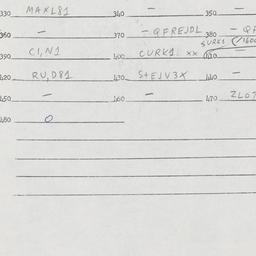 330 MAXL81 340 — 350 —
360 — 370 -QFREJDL 380 -QF
390 CI,N1 400 CURK1 xx 410 SURK1
420 RU,D81 430 S+EJV3X 440 —
450 — 460 — 470 ZLO7
480 O